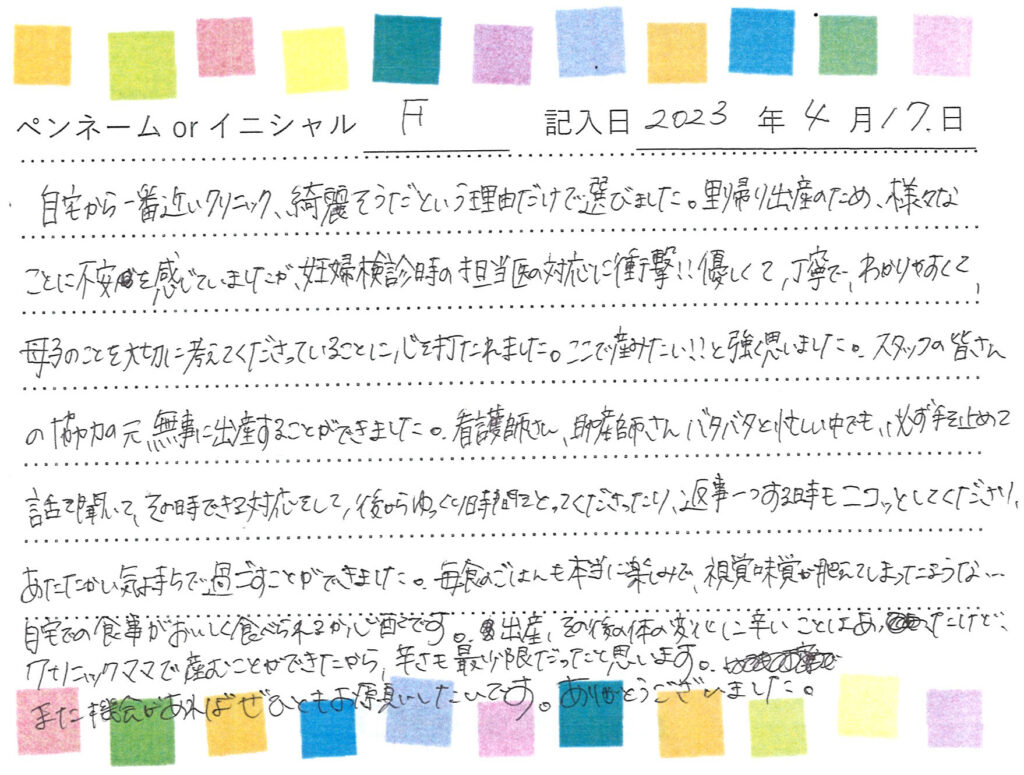 ペンネーム or イニシャル F 記入日 2023 年 4 月 17. 日
自宅から一番近いクリニック、綺麗そうだという理由だけで選びました。里帰り出産のため、様々な
ことに不安を感じていましたが、妊婦検診時の担当医の対応に衝撃!!優しくて、丁寧で、わかりやすくて、
母子のことを大切に考えてくださっていることに心を打たれました。ここで産みたい!!と強く思いました。スタッフの皆さん
の協力の元、無事に出産することができました。看護師さん、助産師さん バタバタと忙しい中でも、必ず手を止めて
話を聞いて、その時できる対応をして、後からゆっくり時間をとってくださったり、返事一つする時もニコッとしてくださり、
あたたかい気持ちで過ごすことができました。毎食のごはんも本当に楽しみで、視覚味覚が肥えてしまったような…
自宅での食事がおいしく食べられるか心配です。出産、その後の体の変化に辛いことはあったけど、
ワサニックママで産むことができたから、辛さも最小限だったと思います。
また機会があればぜひともお願いしたいです。ありがとうございました。